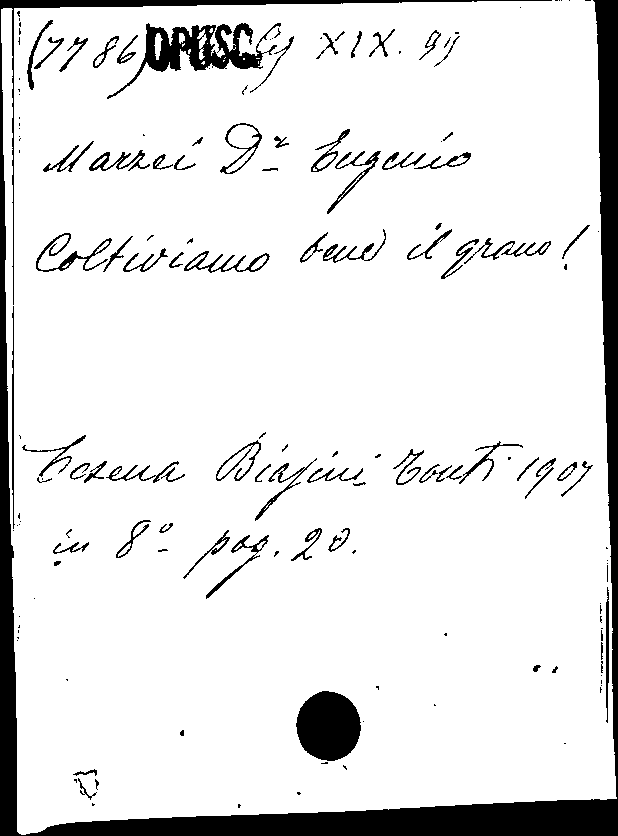 (7786) OPUSC. XIX. 99
Marzei Dr Eugenio
Coltiviamo bene il grano!
Cesena Biasini Tonti 1907
in 8° pag. 20.